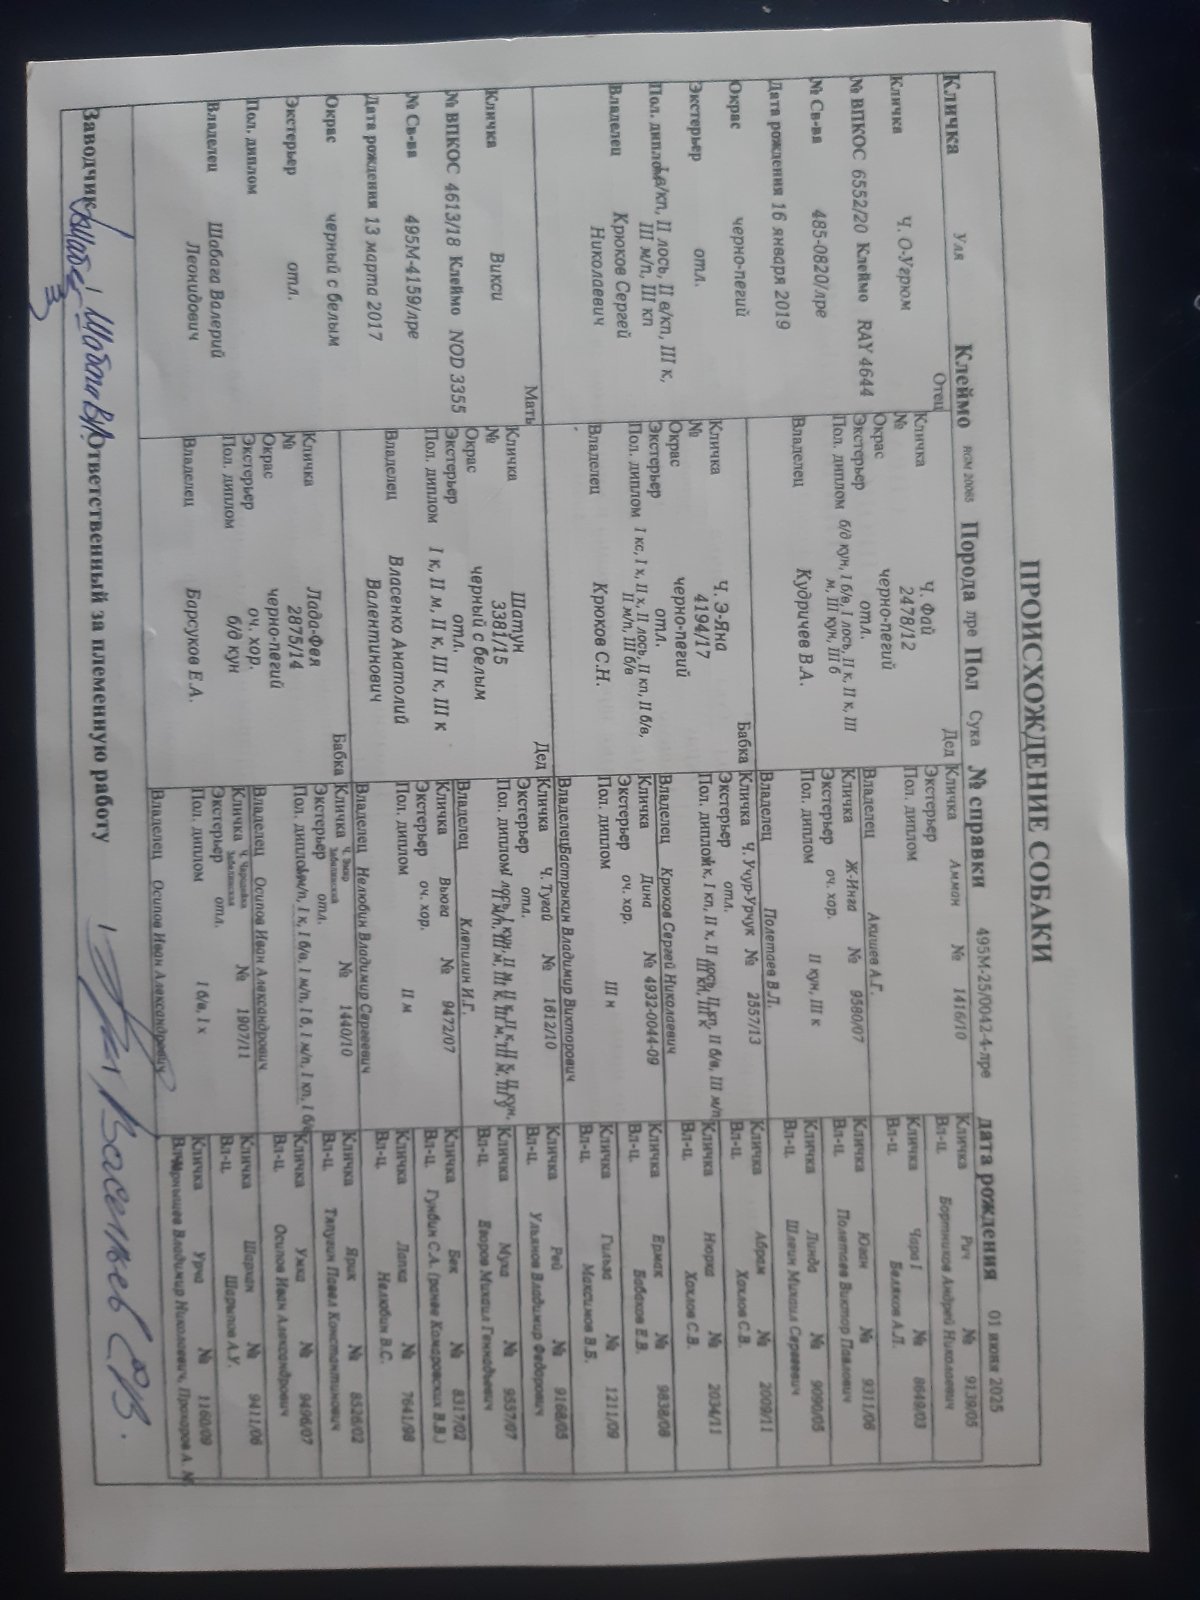 ПРОИСХОЖДЕНИЕ СОБАКИ
Кличка Уля Клеймо RGM 20065 Порода лре Пол Сука № справки 495М-25/0042-4-лре дата рождения 01 июня 2025
Отец
Кличка Ч. О-Угрюм
№ ВПКОС 6552/20 Клеймо RAY 4644
№ Св-ва 485-0820/лре
Дата рождения 16 января 2019
Окрас черно-пегий
Экстерьер отл.
Пол. диплом I в/кп, II лось, II в/кп, III к,
III м/п, III кп
Владелец Крюков Сергей
Николаевич
Мать
Кличка Викси
№ ВПКОС 4613/18 Клеймо NOD 3355
№ Св-ва 495М-4159/лре
Дата рождения 13 марта 2017
Окрас черный с белым
Экстерьер отл.
Пол. диплом
Владелец Шабага Валерий
Леонидович
Дед
Кличка Ч. Фай
№ 2478/12
Окрас черно-пегий
Экстерьер отл.
Пол. диплом б/д кун, I б/в, I лось, II к, II к, III
м, III кун, III б
Владелец Кудричев В.А.
Бабка
Кличка Ч. Э-Яна
№ 4194/17
Окрас черно-пегий
Экстерьер отл.
Пол. диплом I кс, I х, II х, II лось, II кп, II б/в,
II м/п, III б/в
Владелец Крюков С.Н.
Дед
Кличка Шатун
№ 3381/15
Окрас черный с белым
Экстерьер отл.
Пол. диплом I к, II м, II к, III к, III к
Владелец Власенко Анатолий
Валентинович
Бабка
Кличка Лада-Фея
№ 2875/14
Окрас черно-пегий
Экстерьер оч. хор.
Пол. диплом б/д кун
Владелец Барсуков Е.А.
Кличка Амман № 1416/10
Экстерьер
Пол. диплом
Владелец Акишев А.Г.
Кличка Ж-Инга № 9580/07
Экстерьер оч. хор.
Пол. диплом II кун, III к
Владелец Полетаев В.Л.
Кличка Ч. Учур-Урчук № 2557/13
Экстерьер отл.
Пол. диплом I к, I кп, II х, II лось, II кп, II б/в, III м/п,
III кп, III к
Владелец Крюков Сергей Николаевич
Кличка Дина № 4932-0044-09
Экстерьер оч. хор.
Пол. диплом III н
Владелец Бастрыкин Владимир Викторович
Кличка Ч. Тугай № 1612/10
Экстерьер отл.
Пол. диплом I лось, I кун, II м, II к, II к, II к, II кун,
Владелец Клепилин И.Г.
Кличка Вьюга № 9472/07
Экстерьер оч. хор.
Пол. диплом II м
Владелец Нелюбин Владимир Сергеевич
Кличка Ч. Забелинский № 1440/10
Экстерьер отл.
Пол. диплом I м/п, I к, I б/в, I м/п, I б, I м/п, I кп, I б/в
Владелец Осипов Иван Александрович
Кличка Ч. Чародейка Забелинская № 1907/11
Экстерьер отл.
Пол. диплом I б/в, I х
Владелец Осипов Иван Александрович
Кличка Рич № 9139/05
Вл-ц Бортников Андрей Николаевич
Кличка Чара I № 8649/03
Вл-ц Беляков А.Л.
Кличка Юган № 9311/06
Вл-ц Полетаев Виктор Павлович
Кличка Линда № 9090/05
Вл-ц Шлегин Михаил Сергеевич
Кличка Абрам № 2009/11
Вл-ц Хохлов С.В.
Кличка Нюрка № 2034/11
Вл-ц Хохлов С.В.
Кличка Ермак № 9838/08
Вл-ц Бабахов Е.В.
Кличка Гильза № 1211/09
Вл-ц Максимов В.Б.
Кличка Рей № 9168/05
Вл-ц Ульянов Владимир Федорович
Кличка Муха № 9557/07
Вл-ц Егоров Михаил Геннадьевич
Кличка Бек № 8317/02
Вл-ц Гунбин С.А. (ранее Комаровских В.В.)
Кличка Лапка № 7641/98
Вл-ц Нелюбин В.С.
Кличка Ярик № 8526/02
Вл-ц Тяпугин Павел Константинович
Кличка Умка № 9496/07
Вл-ц Осипов Иван Александрович
Кличка Шархан № 9411/06
Вл-ц Шарыпов А.У.
Кличка Урча № 1160/09
Вл-ц Чернышев Владимир Николаевич, Прохоров А. М
Заводчик Шабага В.Л. Ответственный за племенную работу Васильев С.В.